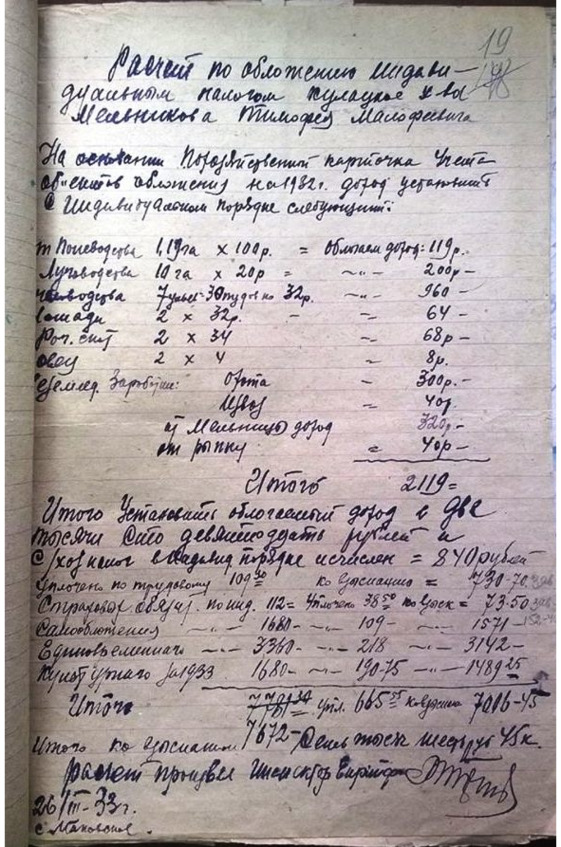 19
Расчет по обложению индиви-
дуальным налогом кулацкое х-ва
Мельникова Тимофея Малофеевича
На основании Похозяйственной карточка Учета
об'ектов обложения на 1932 г. доход установить
в Индивидуальном порядке следующий:
т Полеводства 1,19 га х 100 р. = Облагаем доход: 119 р.
Луговодства 10 га х 20 р = -"- 200 р -
7 ульев 30 пудов по 32 р. -"- 960 -
2 х 32 р. - -"- 64 -
Рог. скот 2 х 34 = 68 р -
овец 2 х 4 = 8 р.
Заработки: Охота = 300 р. -
Извоз = 40 р.
от Мельницы доход 320 р -
от рынку = 40 р -
Итого 2119 =
Итого Установить облагаемый доход в две
тысячи сто девятнадцать рублей и
с/хоз налог в индивид порядке исчислен = 840 рублей
Уплочено по трудовому 109 30 ко взысканию = 730-70
Страховог. обязат. по инд. 112 = Уплочено 38 50 ко взыск = 73-50
Самообложения -"- 1680 - -"- 109 - -"- 1571 -
Единовременного -"- 3360 - -"- 218 -"- 3142 -
Культурнаго за 1933 1680 - -"- 190-75 -"- 1489 25
Итого упл. 665 55 ко взысканию 7006-45
Итого ко взысканию 7672 - Семь тыся шесть руб 45 к.
Расчет произвел Инспектор
26/III-33 г.
с. Маковское.